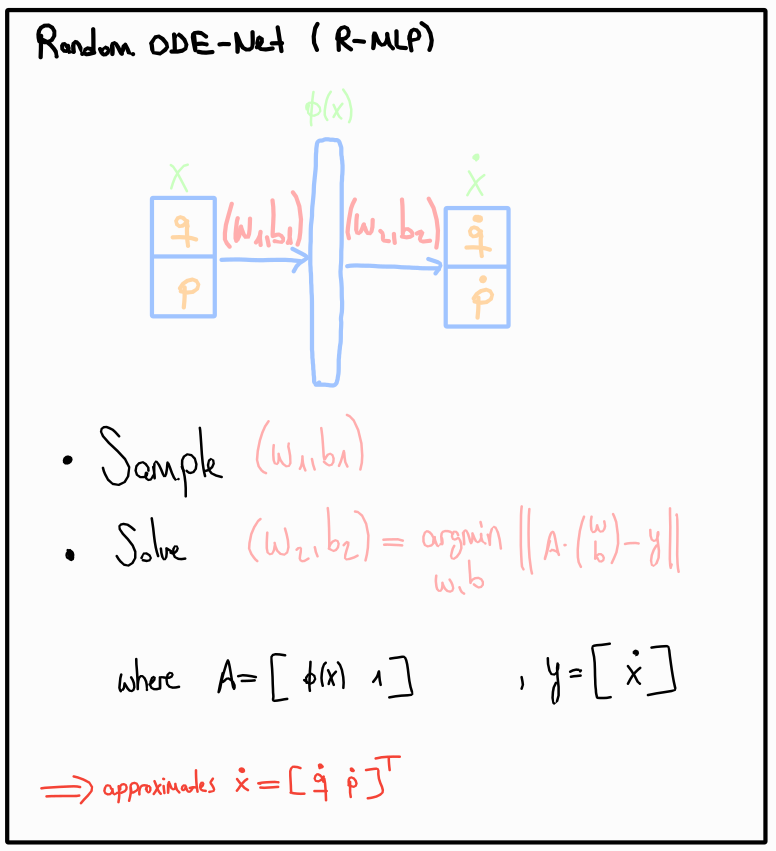 Random ODE-Net ( R-MLP)
ϕ(x)
x ẋ
q (W₁,b₁) (W₂,b₂) q̇
p ṗ
• Sample (W₁,b₁)
• Solve (W₂,b₂) = argmin ‖ A·(w b) − y ‖
w,b
where A = [ ϕ(x) 1 ] , y = [ ẋ ]
⟹ approximates ẋ = [ q̇ ṗ ]ᵀ